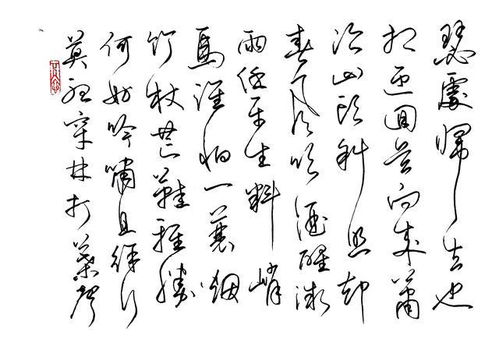 莫聽穿林打葉聲
何妨吟嘯且徐行
竹杖芒鞋輕勝
馬誰怕一蓑烟
雨任平生料峭
春風吹酒醒微
冷山頭斜照却
相迎回首向來蕭
瑟處歸去也